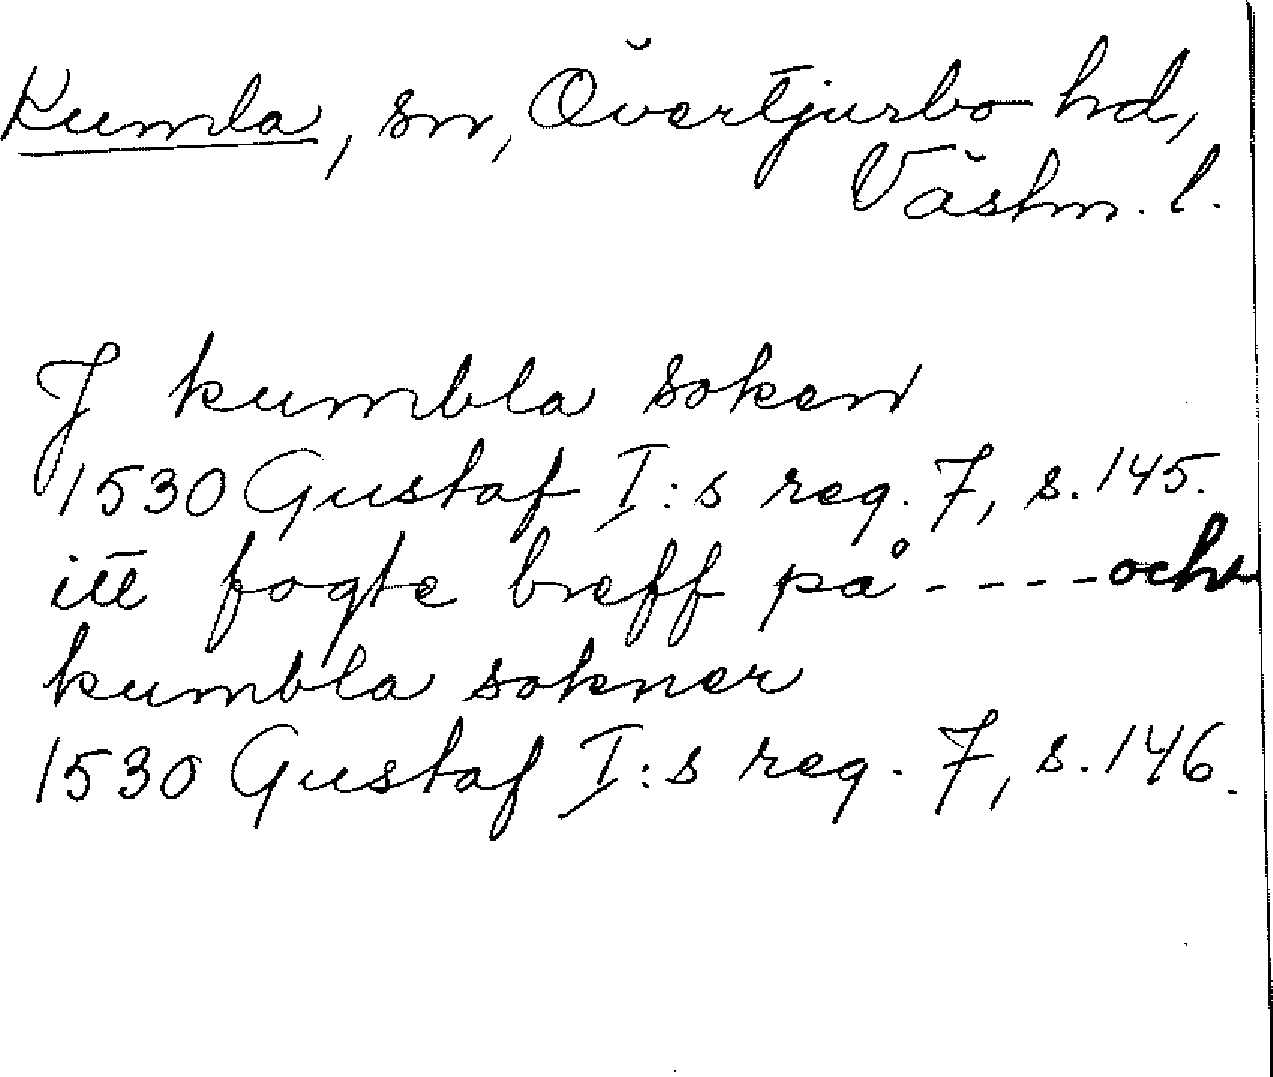 Kumla, sn, Övertjurbo hd,
Västm. l.
J kumbla soken
1530 Gustaf I:s reg. 7, s. 145.
itt fogte breff på - - - - och
kumbla sokner
1530 Gustaf I:s reg. 7, s. 146.